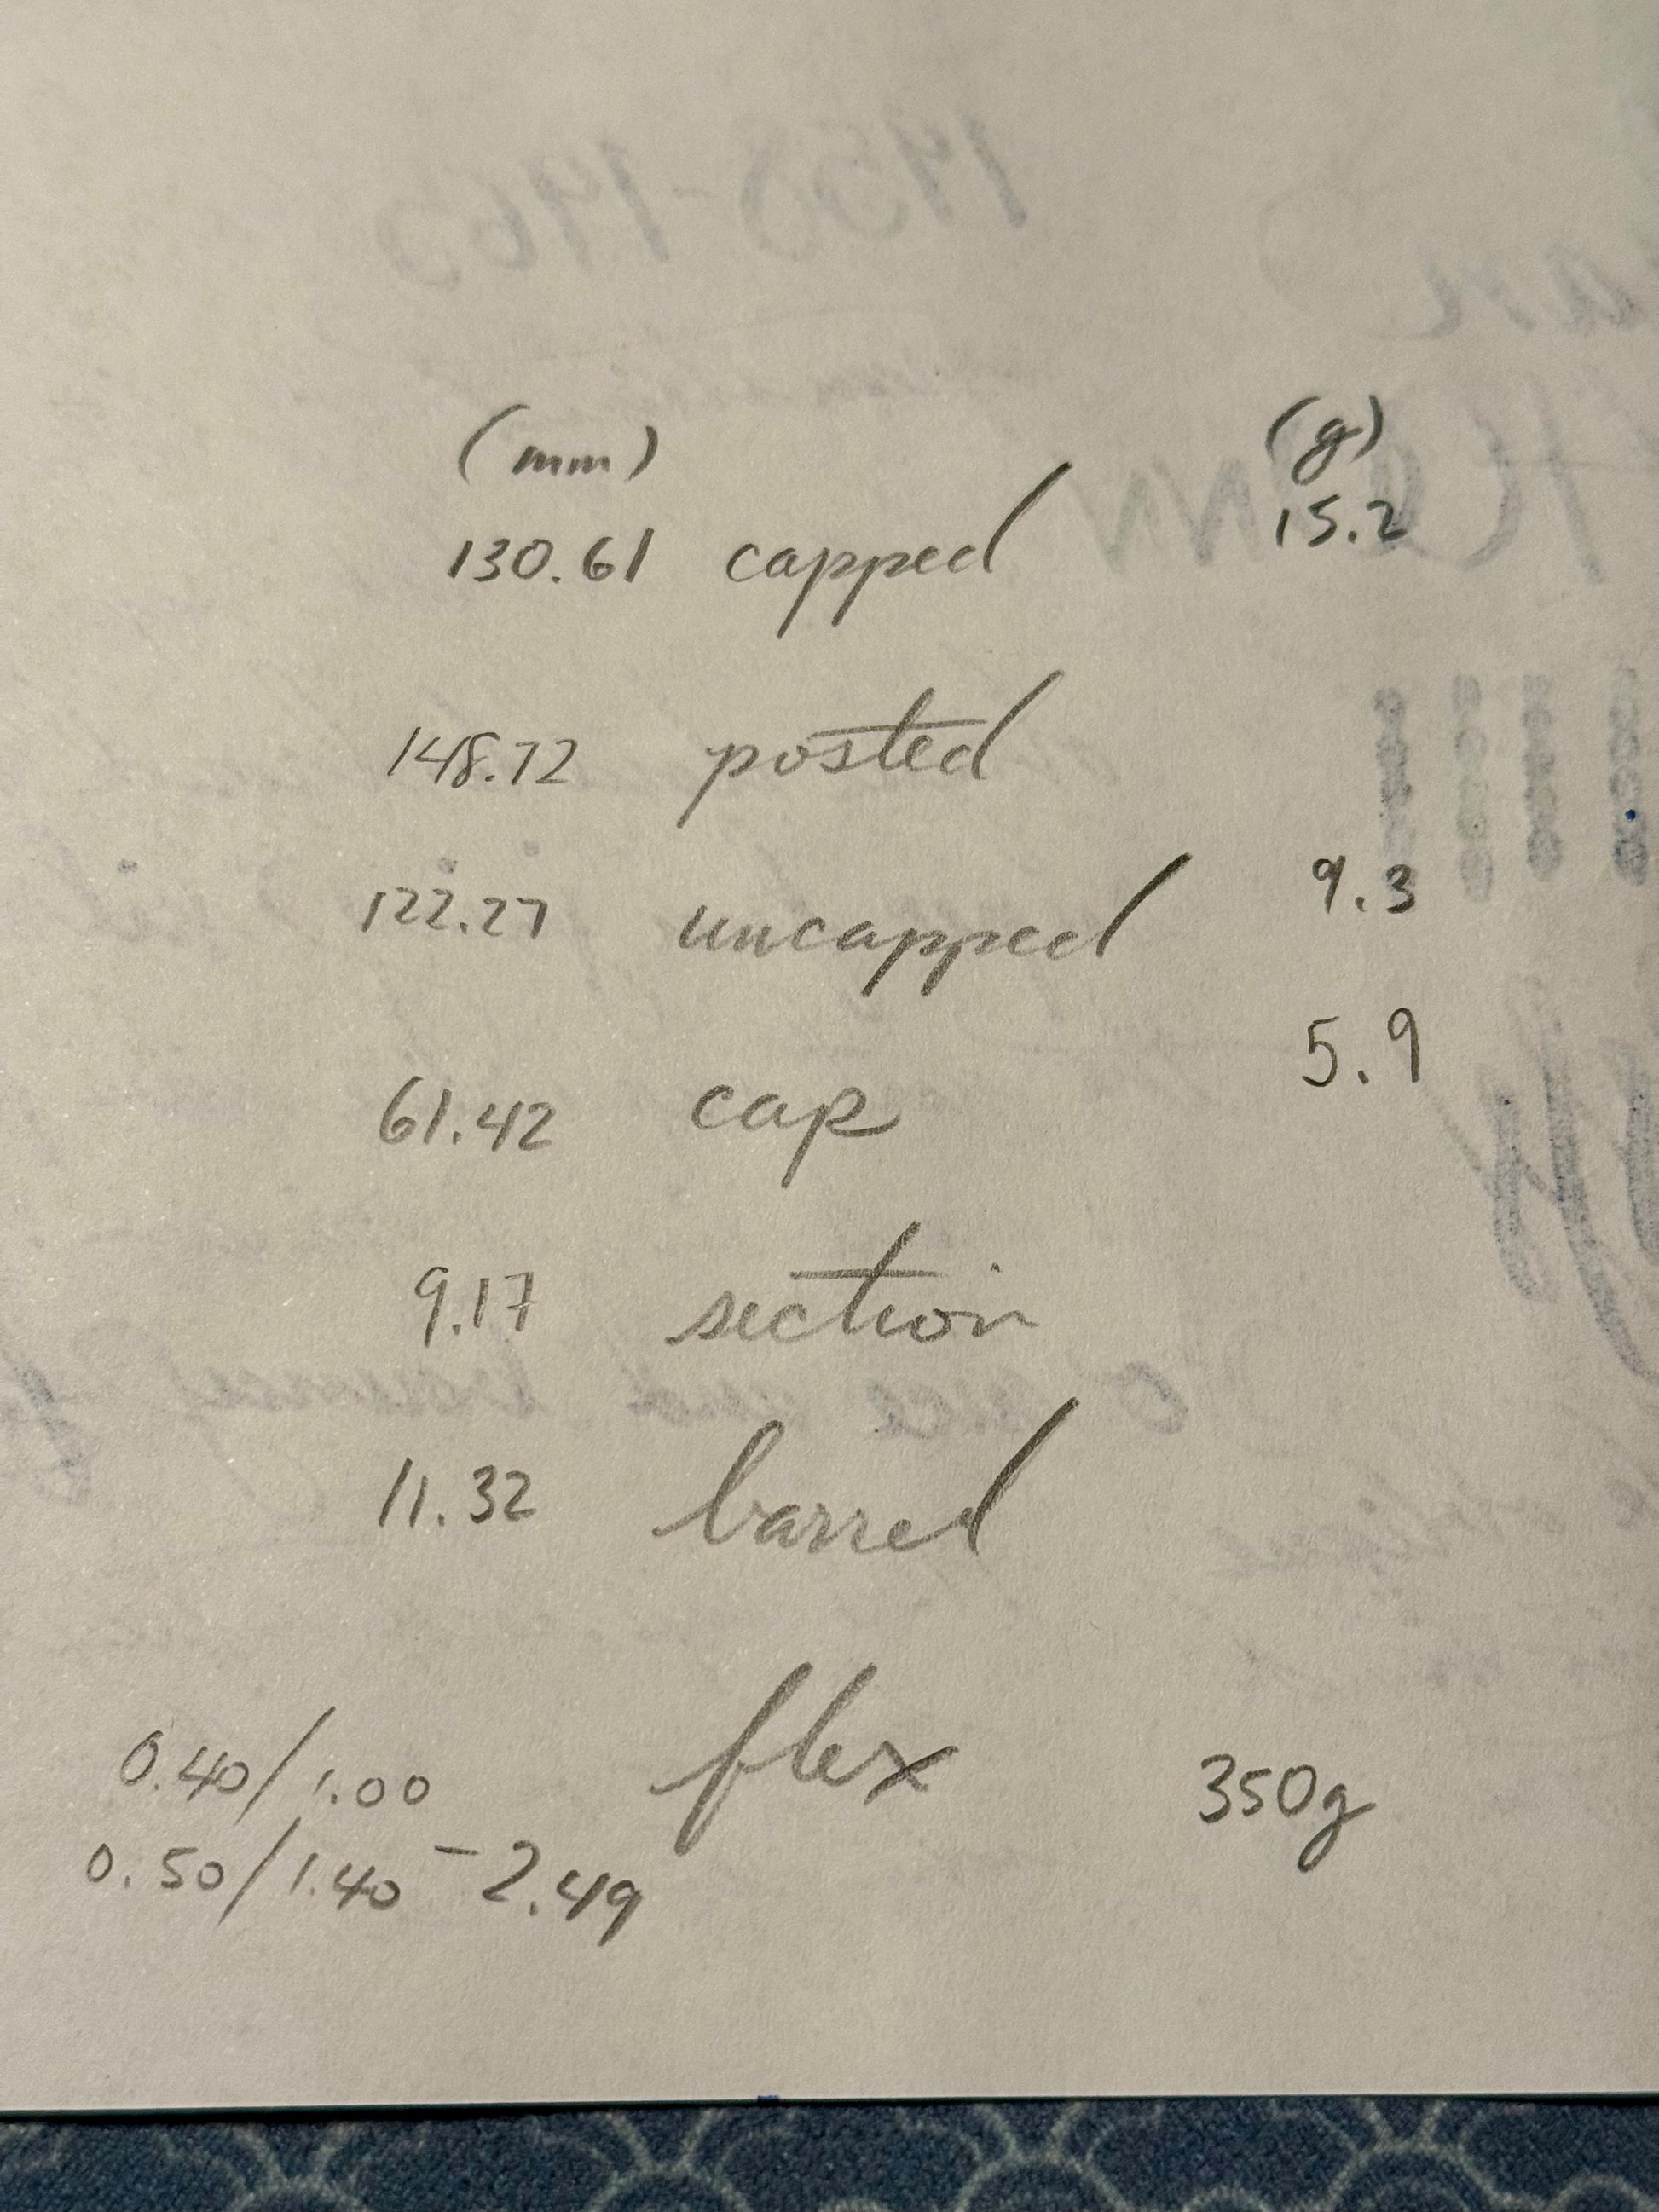 (mm) (g)
130.61 capped 15.2
148.72 posted
122.27 uncapped 9.3
61.42 cap 5.9
9.17 section
11.32 barrel
0.40/1.00 flex 350g
0.50/1.40 - 2.49